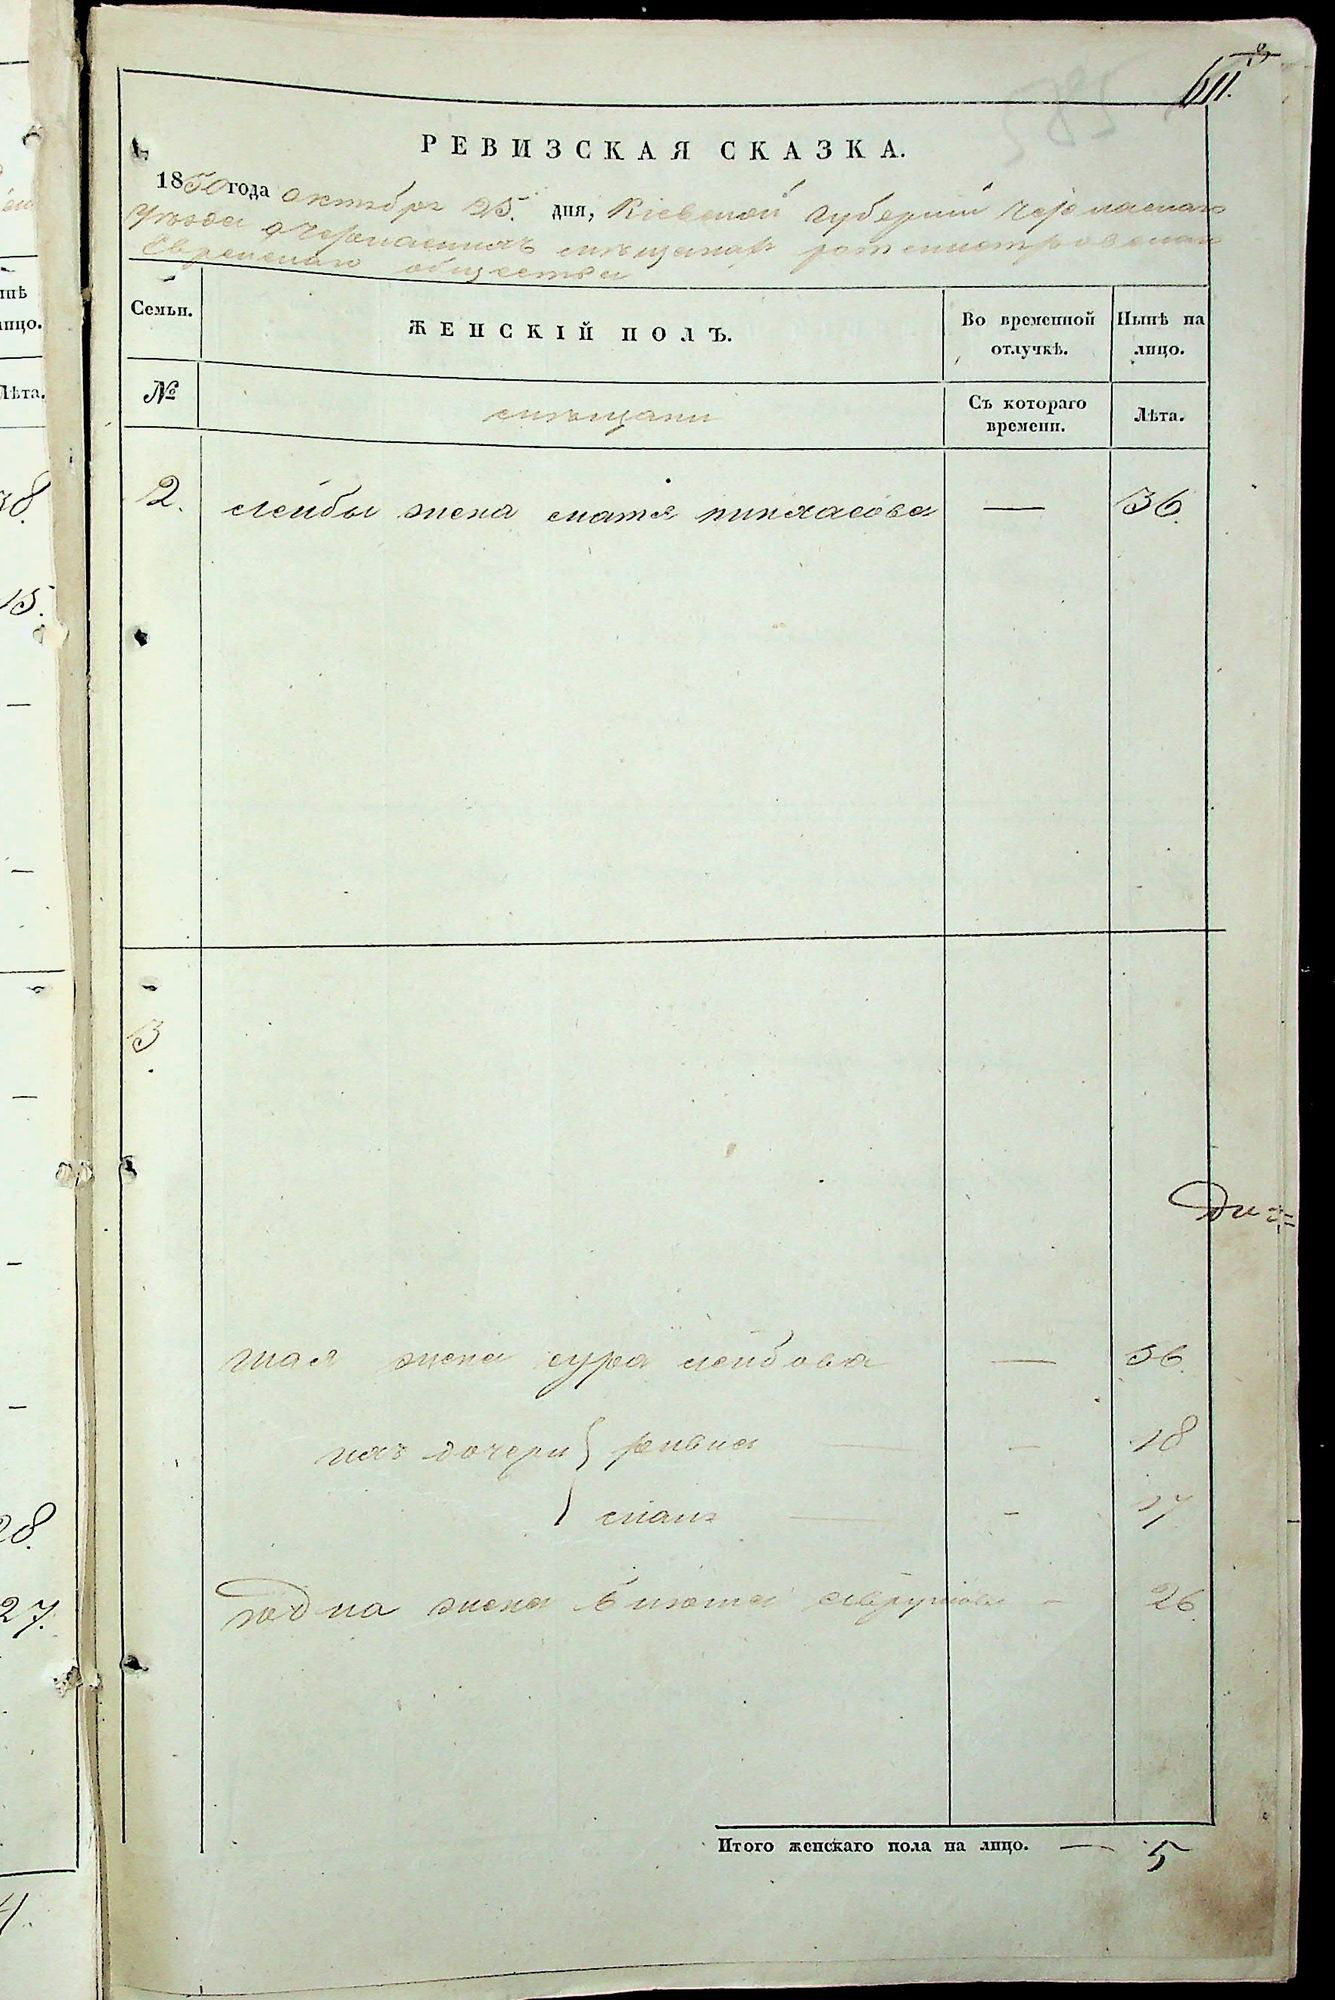 611.
РЕВИЗСКАЯ СКАЗКА.
1850 года октября 25. дня, Кіевской губерніи Черкаскаго
уѣзда о черкаскихъ мѣщанах ротмистровскаго
Еврейскаго общества
Семьи.
ЖЕНСКІЙ ПОЛЪ.
Во временной отлучкѣ.
Нынѣ на лицо.
№
мѣщани
Съ котораго времени.
Лѣта.
2. Лейбы жена матя пинхасова — 36.
3
жена сура лейбова — 36.
ихъ дочери ривка - 18
- 17
жена - 26.
Итого женскаго пола на лицо. — 5
нѣ
лицо.
Лѣта.
38.
15.
28.
27.
4.